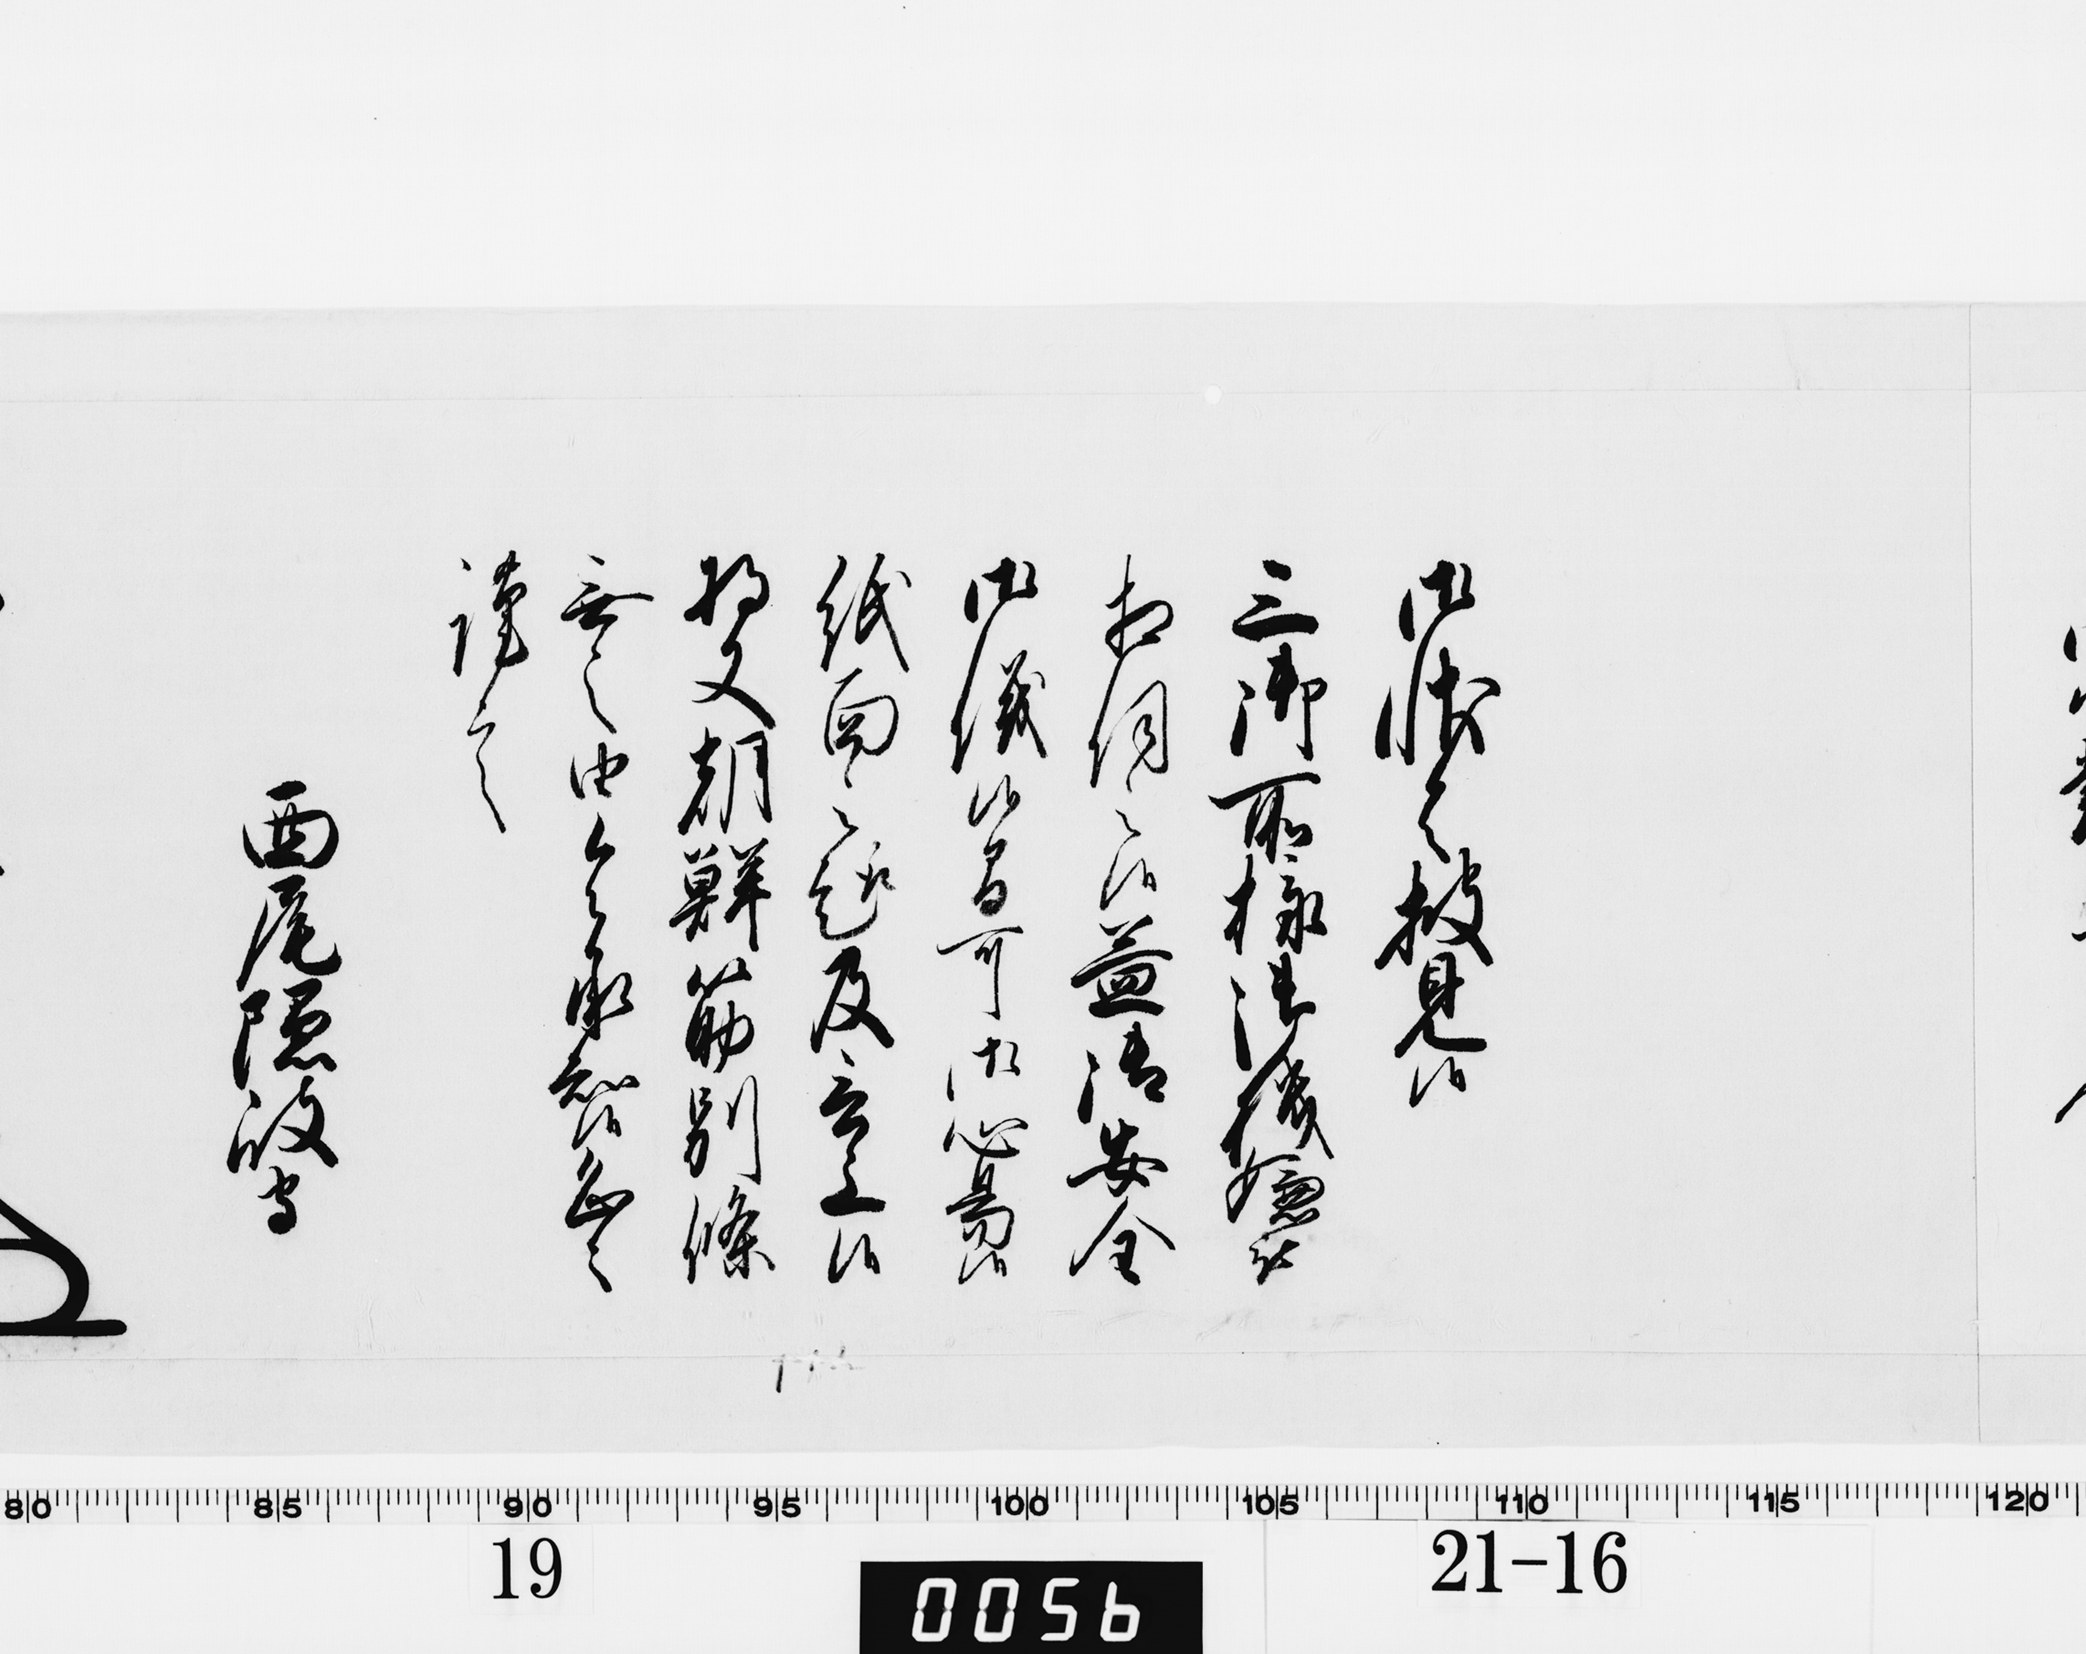 御状令披見候
三御所様御機嫌被
相伺之候益御安全
御儀候間可御心易候
紙面之趣及言上候
将又朝鮮筋別條
無之由令承知候恐々
謹言
西尾隠岐守
80 85 90 95 100 105 110 115 120
19
0056
21-16